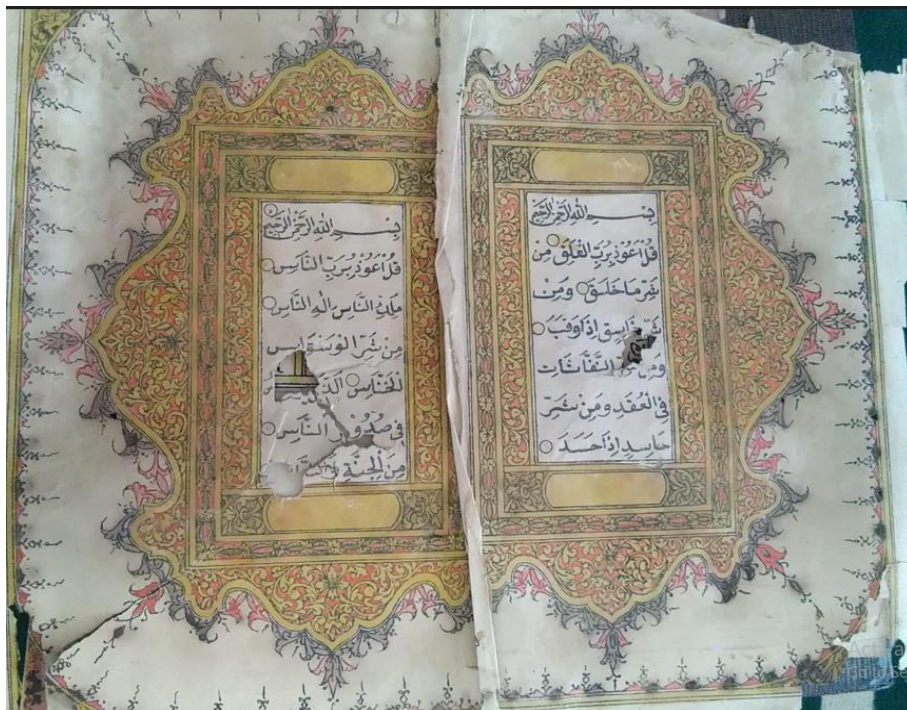 بِسْمِ اللهِ الرَّحْمٰنِ الرَّحِيْمِ
قُلْ اَعُوْذُ بِرَبِّ الْفَلَقِ مِنْ
شَرِّ مَا خَلَقَ وَمِنْ
شَرِّ غَاسِقٍ اِذَا وَقَبَ
وَمِنْ النَّفَّاثَاتِ
فِي الْعُقَدِ وَمِنْ شَرِّ
حَاسِدٍ اِذَا حَسَدَ
بِسْمِ اللهِ الرَّحْمٰنِ الرَّحِيْمِ
قُلْ اَعُوْذُ بِرَبِّ النَّاسِ
مَلِكِ النَّاسِ اِلٰهِ النَّاسِ
مِنْ شَرِّ الْوَسْوَاسِ
الْخَنَّاسِ
فِي صُدُوْرِ النَّاسِ
مِنَ الْجِنَّةِ